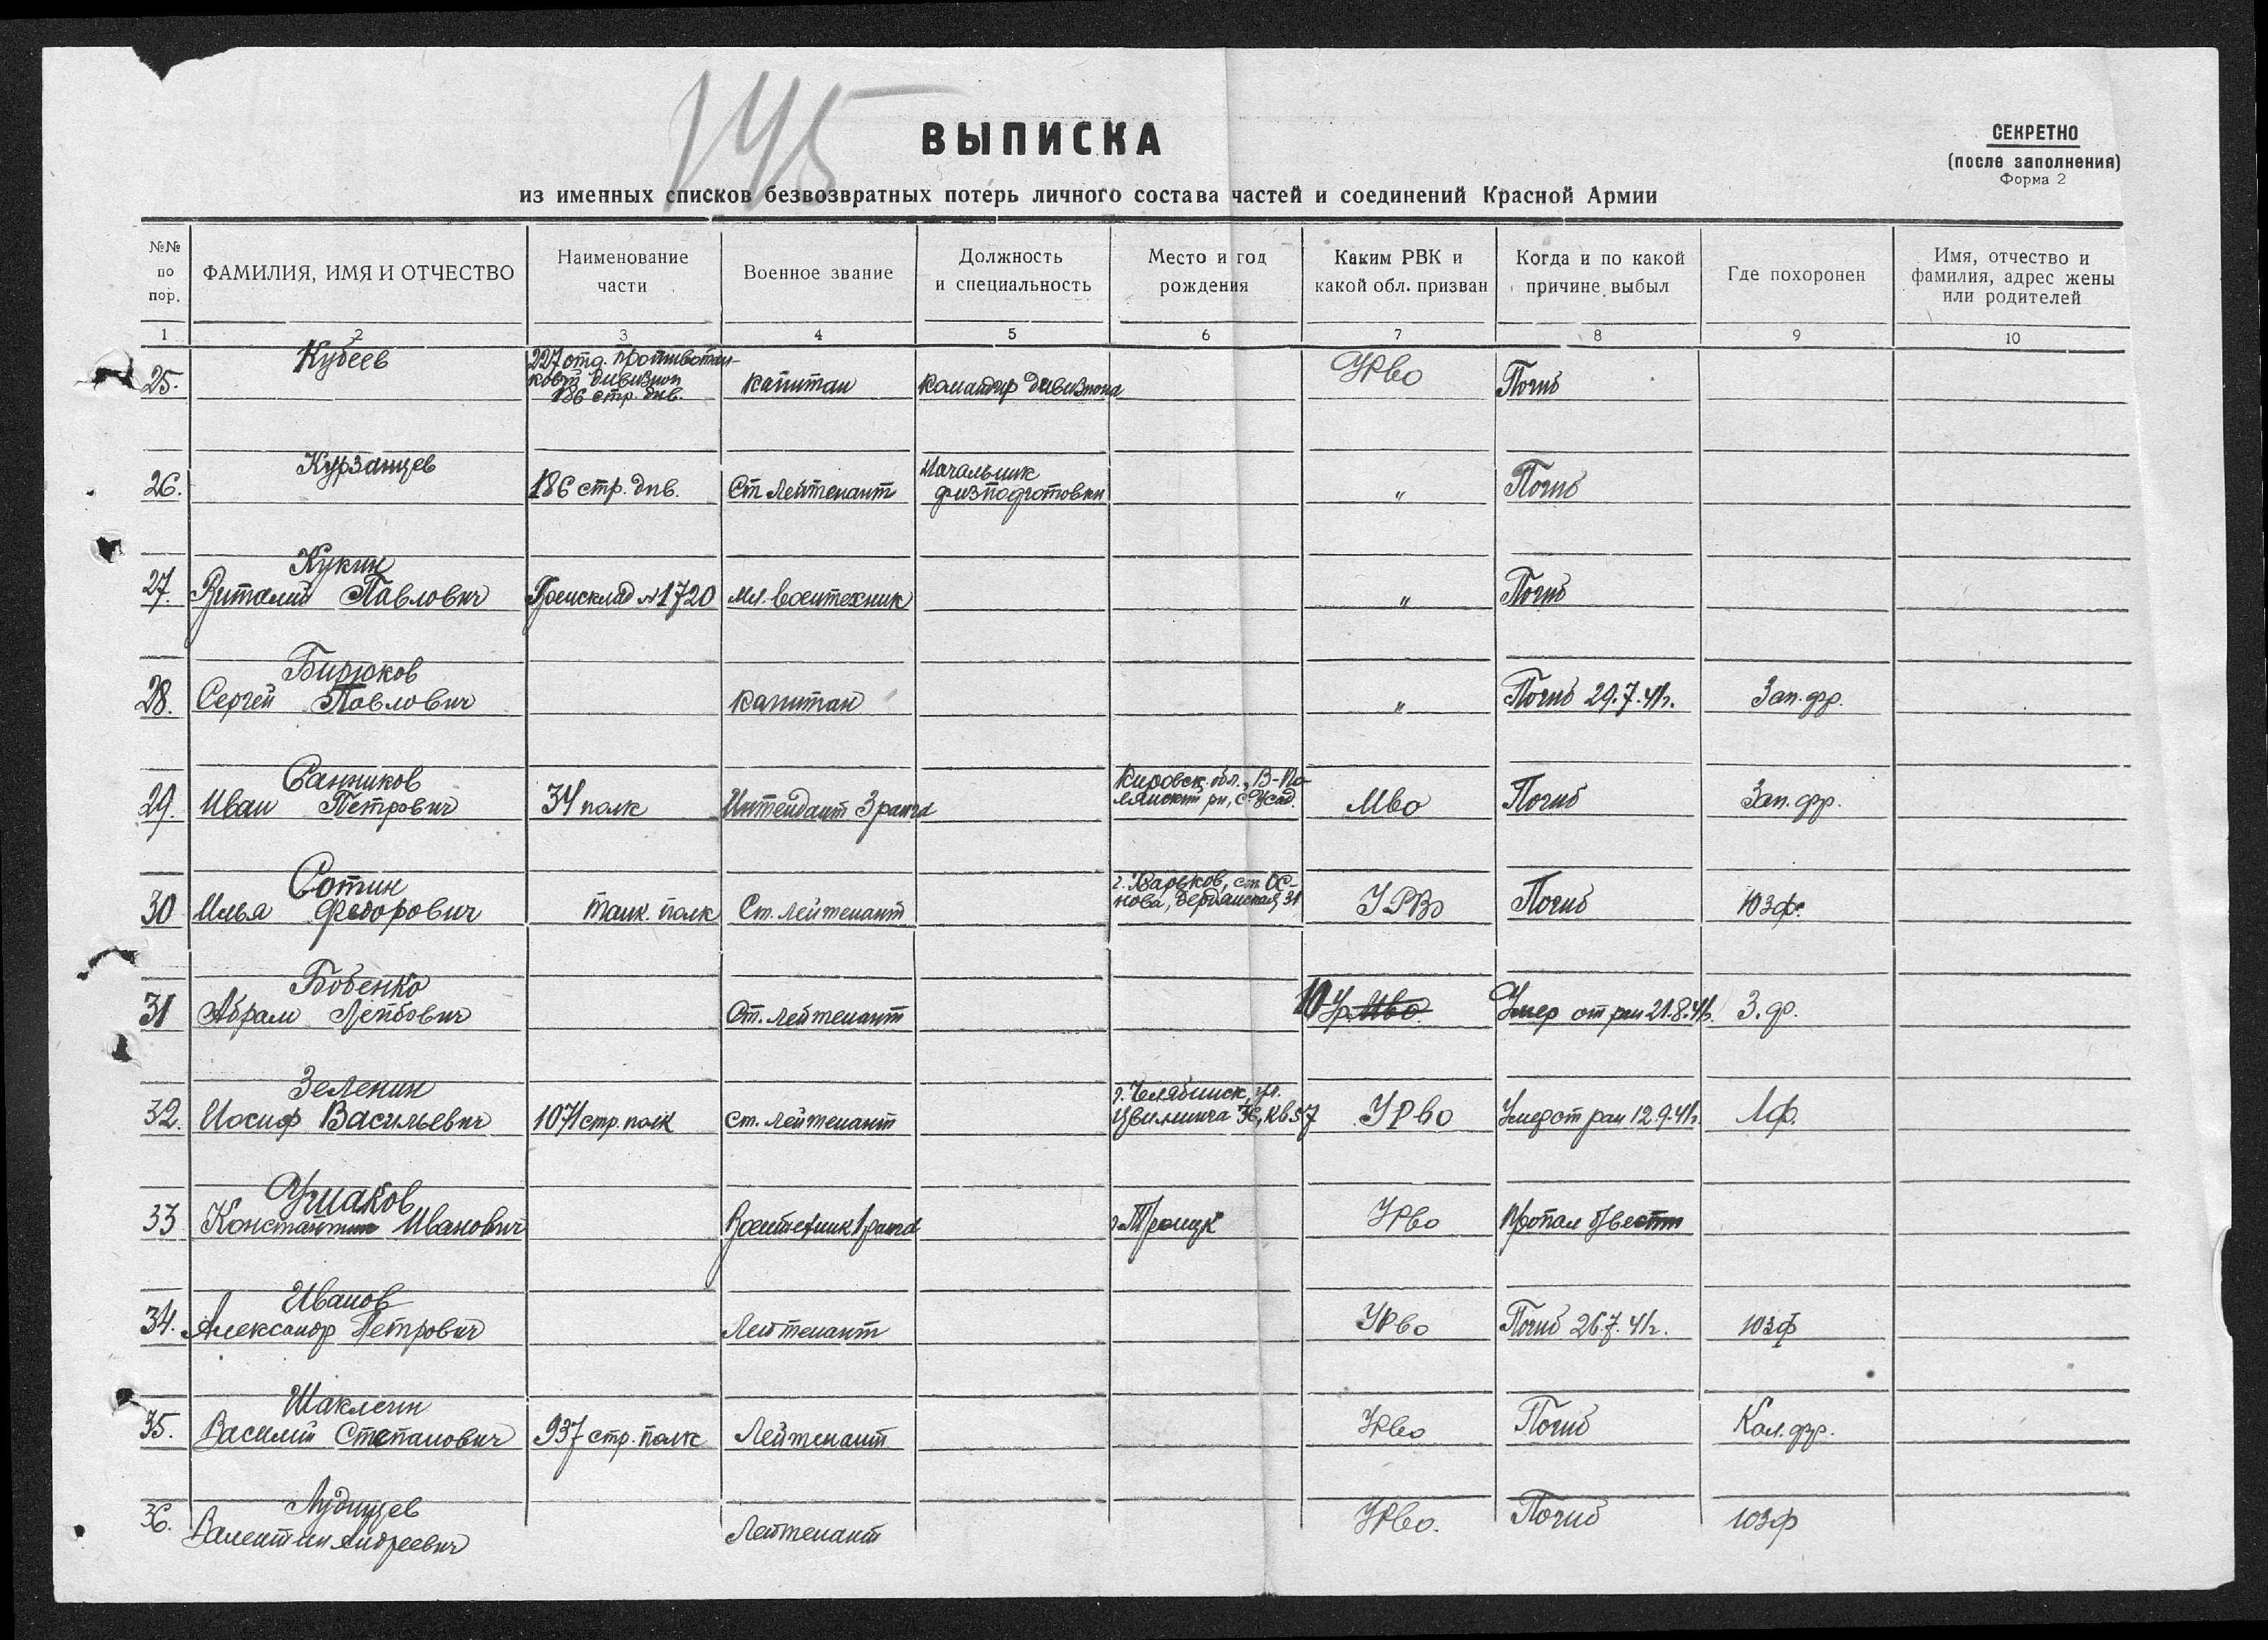 145
ВЫПИСКА
СЕКРЕТНО
(после заполнения)
Форма 2
из именных списков безвозвратных потерь личного состава частей и соединений Красной Армии
№№ по пор.
ФАМИЛИЯ, ИМЯ И ОТЧЕСТВО
Наименование части
Военное звание
Должность и специальность
Место и год рождения
Каким РВК и какой обл. призван
Когда и по какой причине выбыл
Где похоронен
Имя, отчество и фамилия, адрес жены или родителей
1 2 3 4 5 6 7 8 9 10
25. Кубеев 227 отд. противотанковый дивизион 186 стр. див. капитан командир дивизиона УРВО Погиб
26. Курзанцев 186 стр. див. Ст. лейтенант Начальник физподготовки " Погиб
27. Кукин Виталий Павлович №1720 Мл. воентехник " Погиб
28. Бирюков Сергей Павлович капитан " Погиб 29.7.41г. Зап. фр.
29. Санников Иван Петрович 34 полк Интендант 3 ранга Кировск. обл., В-Полянский рн, с. Усад. МВО Погиб Зап. фр.
30 Сотин Илья Федорович танк. полк Ст. лейтенант г. Харьков, ст. Основа, 31 УРВО Погиб ЮЗФ.
31 Бобенко Абрам Лейбович Ст. лейтенант МВО Умер от ран 21.8.41г. З. ф.
32. Зеленин Иосиф Васильевич 1071 стр. полк Ст. лейтенант г. Челябинск, ул. Цвиллинга 36, кв 57 УРВО Умер от ран 12.9.41г. Лф.
33 Ушаков Константин Иванович Воентехник 1 ранга г. Троицк УРВО Пропал б/вести
34. Иванов Александр Петрович Лейтенант УРВО Погиб 26.7.41г. ЮЗФ
35. Шаклеин Василий Степанович 937 стр. полк Лейтенант УРВО Погиб Кал. фр.
36. Лудищев Валентин Андреевич Лейтенант УРВО. Погиб ЮЗФ